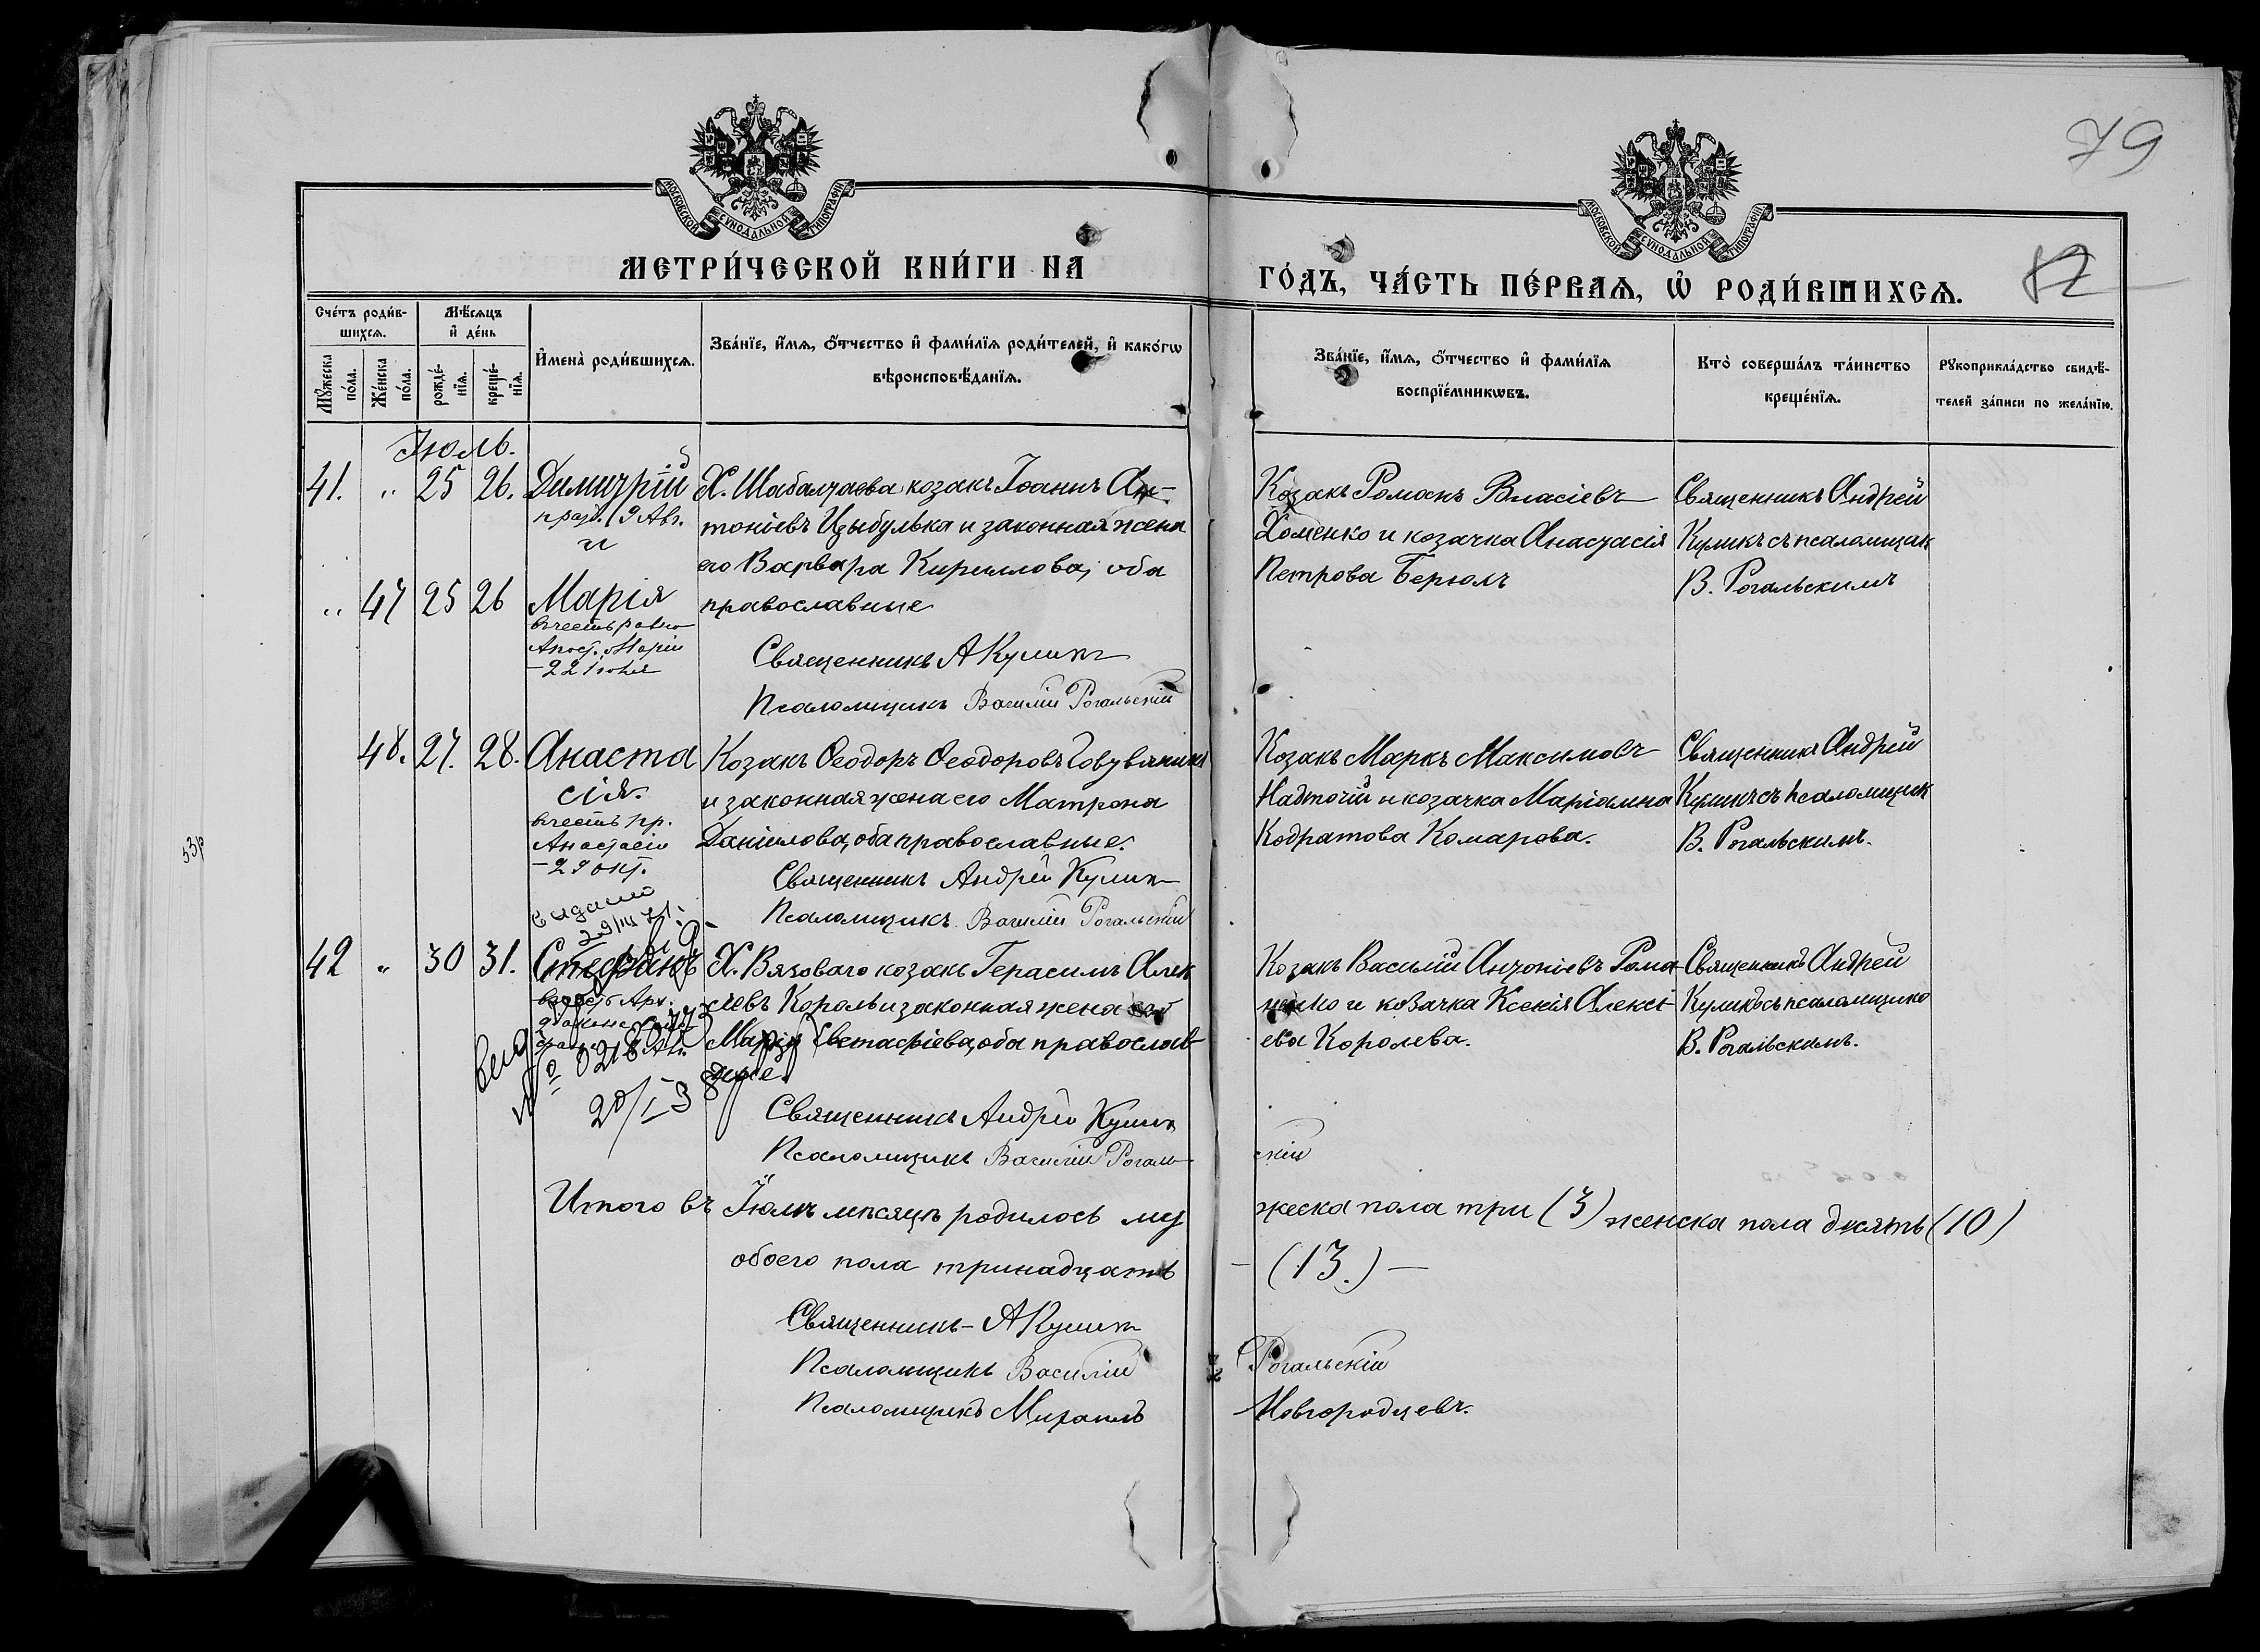 79
МОСКОВСКОЙ СѴНОДАЛЬНОЙ ТИПОГРАФІИ
МОСКОВСКОЙ СѴНОДАЛЬНОЙ ТИПОГРАФІИ
МЕТРИ́ЧЕСКОЙ КНИ́ГИ НА
ГО́ДЪ, ЧА́СТЬ ПЕ́РВАѦ, Ѡ҆ РОДИ́ВШИХСѦ.
Сче́тъ роди́в-
шихсѧ.
Мꙋ́жеска
по́ла.
Же́нска
по́ла.
Мѣ́сѧцъ
и҆ де́нь
рожде́-
нїѧ.
креще́-
нїѧ.
И҆мена̀ роди́вшихсѧ.
Зва́нїе, и҆́мѧ, ѻ҆́тчество и҆ фами́лїѧ роди́телей, и҆ како́гѡ
вѣроисповѣ́данїѧ.
Зва́нїе, и҆́мѧ, ѻ҆́тчество и҆ фами́лїѧ
воспрїе́мникѡвъ.
Кто̀ соверша́лъ та́инство
креще́нїѧ.
Рꙋкоприкла́дство свидѣ́-
телей за́писи по жела́нїю.
Іюль.
41. " 25 26. Димитрій
празд. 9 Авг.
Х. Шабалтаева козакъ Іоаннъ Ан-
тоніевъ Цыбулька и законная жена
его Варвара Кириллова, оба
православные
Козакъ Романъ Власіевъ
Хоменко и козачка Анастасія
Петрова Берюлъ
Священникъ Андрей
Куликъ съ псаломщик
В. Рогальскимъ
" 47 25 26 Марія
въ честь равно
Апост. Маріи
-22 іюля
Священникъ А Куликъ
Псаломщикъ Василій Рогальскій
48. 27. 28. Анаста
сія.
въ честь пр.
Анастасіи
-29 окт.
Козакъ Ѳеодоръ Ѳеодоровъ
и законная жена его Матрона
Даніилова, оба православные.
Священникъ Андрей Куликъ
Псаломщикъ Василій Рогальскій
Козакъ Маркъ Максимовъ
Надточій и козачка Маріамна
Кодратова Комарова.
Священникъ Андрей
Куликъ съ псаломщик
В. Рогальскимъ.
видано
42 " 30 31. Стефанъ
въ честь Арх.
Х. Вязоваго козакъ Герасимъ Алек
сіевъ Король и законная жена его
Марія Евстафіева, оба православ
ные.
Священникъ Андрей Куликъ
Псаломщикъ Василій Рогаль
скій
Козакъ Василій Антоніевъ Рома
ненко и козачка Ксенія Алексі
ева Королева.
Священникъ Андрей
Куликъ съ псаломщико
В. Рогальскимъ.
20/I 38
Итого въ Іюлѣ мѣсяцѣ родилось му
жеска пола три (3) женска пола десять (10)
обоего пола тринадцать - (13.) -
Священникъ - А Куликъ
Псаломщикъ Василій Рогальскій
Псаломщикъ Михаилъ Новгородцевъ.
53р